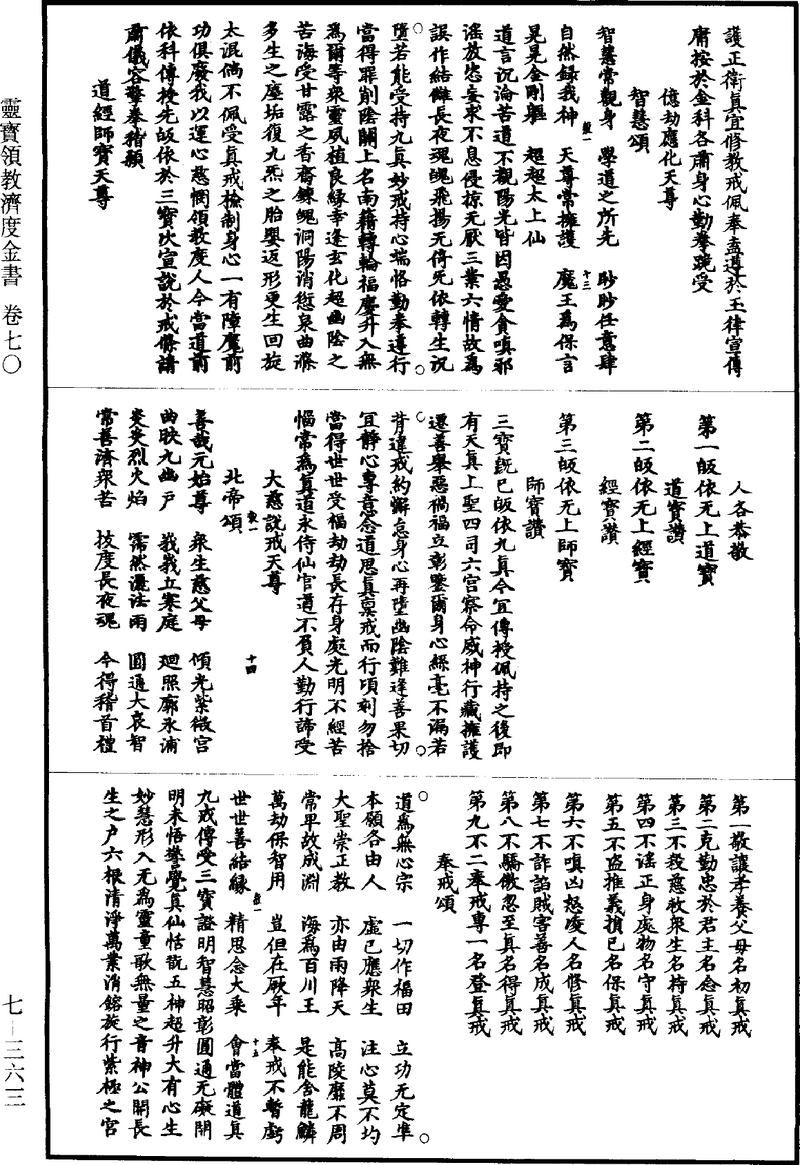 護正衛真宜修教戒佩奉盍遵於玉律宣傳
庸按於金科各肅身心勤拳跪受
億劫應化天尊
智慧頌
智慧常觀身　學道之所先　眇眇任意肆
自然錄我神　天尊常擁護　魔王為保言
晃晃金剛軀　超超太上仙
道言沉淪苦道不覩陽光皆因愚愛貪嗔邪
淫放恣妄求不息侵掠无厭三業六情故為
誤作結讎長夜魂魄飛揚无倚无依轉生沉
墮若能受持九真妙戒持心端恪勤奉遵行
當得罪削陰關上名南籍轉輪福慶升入無
為爾等衆靈夙植良緣幸逢玄化超幽陰之
苦海受甘露之香齋鍊魄洞陽消愆泉曲滌
多生之塵垢復九炁之胎嬰返形更生回旋
太混倘不佩受真戒檢制身心一有障魔前
功俱廢我以運心慈憫領教度人今當道前
依科傳授先皈依於三寶次宣說於戒條請
肅儀容擎拳稽顙
道經師寶天尊
人各恭敬
第一皈依无上道寶
道寶讚
第二皈依无上經寶
經寶讚
第三皈依无上師寶
師寶讚
三寶既已皈依九真今宜傳授佩持之後即
有天真上聖四司六宮察命威神行藏擁護
遷善舉惡禍福立彰鑒爾身心絲毫不漏若
背違戒約懈怠身心再墮幽陰難逢善果切
宜靜心專意念道思真稟戒而行頃刻勿捨
當得世世受福劫劫長存身處光明不經苦
惱常為真道永侍仙官道不負人勤行諦受
大慈說戒天尊
北帝頌
善哉元始尊　衆生慈父母　傾光紫微宮
曲映九幽戶　峩峩立寒庭　廻照廓氷浦
炎炎烈火焰　霈然灑法雨　圓通大哀智
常善濟衆苦　拔度長夜魂　今得稽首禮
第一敬讓孝養父母名初真戒
第二克勤忠於君主名念真戒
第三不殺慈救衆生名持真戒
第四不淫正身處物名守真戒
第五不盜推義損已名保真戒
第六不嗔凶怒凌人名修真戒
第七不詐諂賊害善名成真戒
第八不驕傲忽至真名得真戒
第九不二奉戒專一名登真戒
奉戒頌
道為無心宗　一切作福田　立功无定準
本願各由人　虛已應衆生　注心莫不均
大聖崇正教　亦由雨降天　高陵靡不周
常卑故成淵　海為百川王　是能舍龍鱗
萬劫保智用　豈但在厥年　奉戒不暫虧
世世善結緣　精思念大乘　會當體道真
九戒傳受三寶證明智慧昭彰圓通无礙開
明未悟警覺真仙恬翫五神超升大有心生
妙慧形入无為靈童歌無量之音神公開長
生之戶六根清淨萬業消鎔旋行紫極之宮
靈寶領教濟度金書　卷七〇
七—三六三